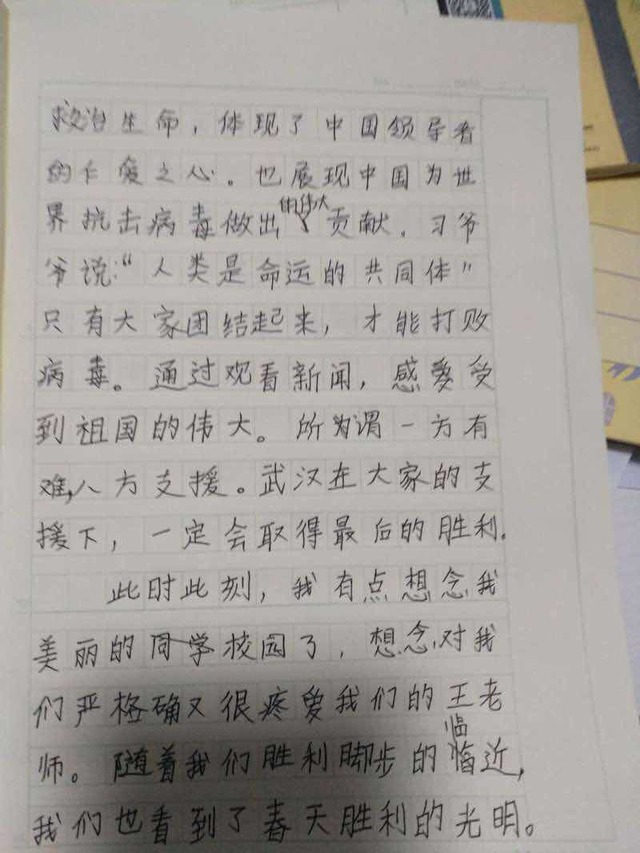 救治生命，体现了中国领导者
的仁爱之心。也展现中国为世
界抗击病毒做出的伟大贡献．习爷
爷说：“人类是命运的共同体”
只有大家团结起来，才能打败
病毒。通过观看新闻，感爱受
到祖国的伟大。所为谓一方有
难，八方支援。武汉在大家的支
援下，一定会取得最后的胜利．
此时此刻，我有点想念我
美丽的同学校园了，想念，对我
们严格确又很疼爱我们的王老
师。随着我们胜利脚步的临近，
临
我们也看到了春天胜利的光明。